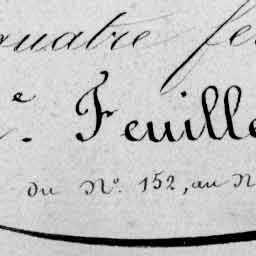 quatre fe
e. Feuille
du N°. 152, au N